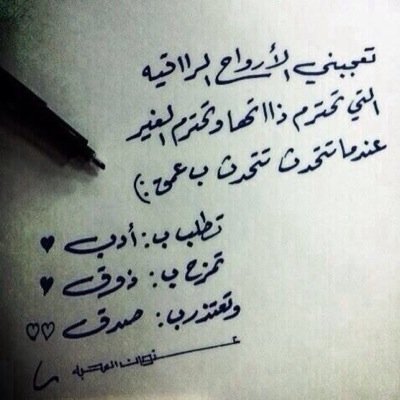 تعجبني الأرواح الرااقيه
التي تحترم ذااتها وتحترم الغير
عندما تتحدث تتحدث ب عمق :)
تطلب ب : أدب ♥
تمزح ب : ذوق ♥
وتعتذر ب : صدق ♡♡